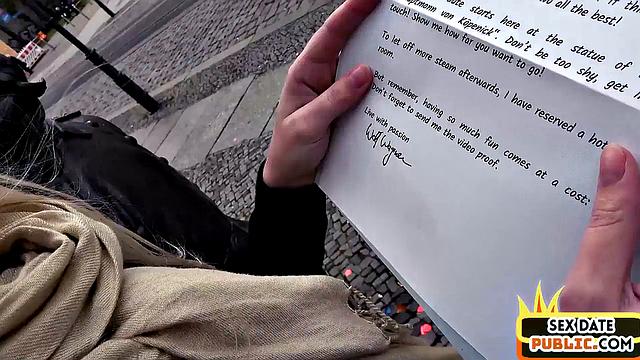 if th
ou all the best!
ate starts here at the statue of
auptmann von Köpenick". Don't be too shy, get i
touch! Show me how far you want to go!
To let off more steam afterwards, I have reserved a hot
room.
But remember, having so much fun comes at a cost:
Don't forget to send me the video proof.
Live with passion
Wolf Wagner
SEX DATE
PUBLIC.COM